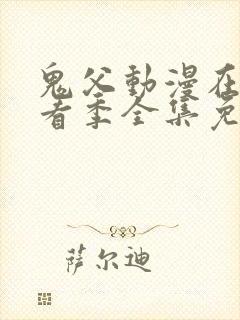 鬼父動漫在
看季全集免
萨尔迪